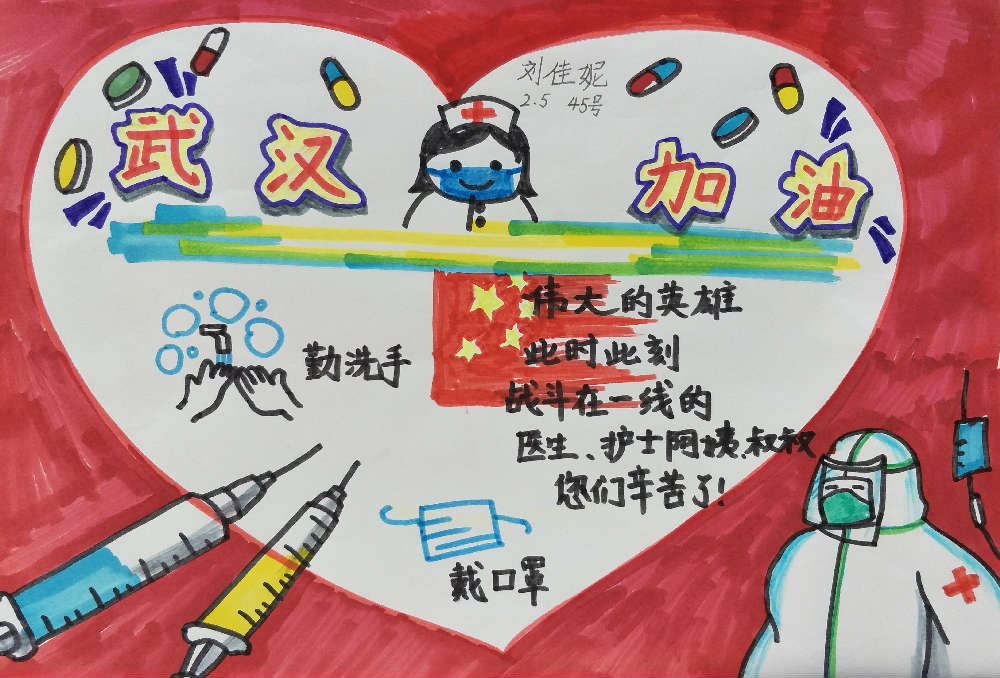 刘佳妮
2.5 45号
武汉加油
勤洗手
伟大的英雄
此时此刻
战斗在一线的
医生、护士阿姨、叔叔
您们辛苦了!
戴口罩